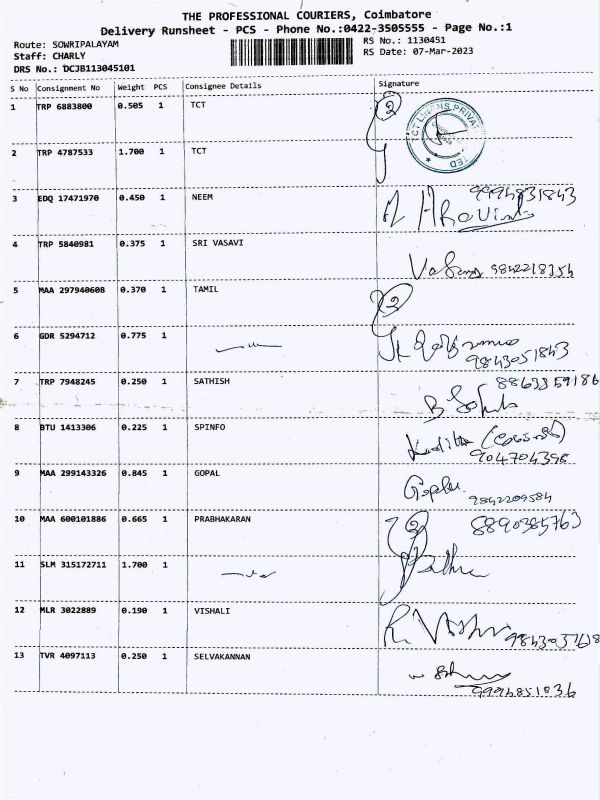 THE PROFESSIONAL COURIERS, Coimbatore
Delivery Runsheet - PCS - Phone No.:0422-3505555 - Page No.:1
Route: SOWRIPALAYAM
Staff: CHARLY
DRS No.: DCJB113045101
RS No.: 1130451
RS Date: 07-Mar-2023
S No Consignment No Weight PCS Consignee Details Signature
1 TRP 6883800 0.505 1 TCT 2
2 TRP 4787533 1.700 1 TCT
3 EDQ 17471970 0.450 1 NEEM
4 TRP 5840981 0.375 1 SRI VASAVI
5 MAA 297940608 0.370 1 TAMIL 2
6 GDR 5294712 0.775 1
9843051843
7 TRP 7948245 0.250 1 SATHISH
8 BTU 1413306 0.225 1 SPINFO
904704398
9 MAA 299143326 0.845 1 GOPAL
Gopal
9842209584
10 MAA 600101886 0.665 1 PRABHAKARAN 2 8890385763
11 SLM 315172711 1.700 1
12 MLR 3022889 0.190 1 VISHALI
13 TVR 4097113 0.250 1 SELVAKANNAN